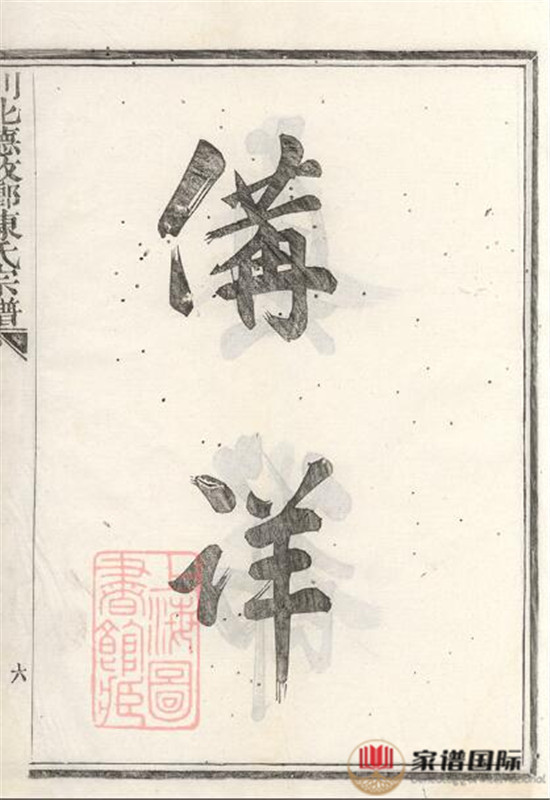 備
詳
川北德政鄉陳氏宗譜
六
上海圖
書館藏
家谱国际